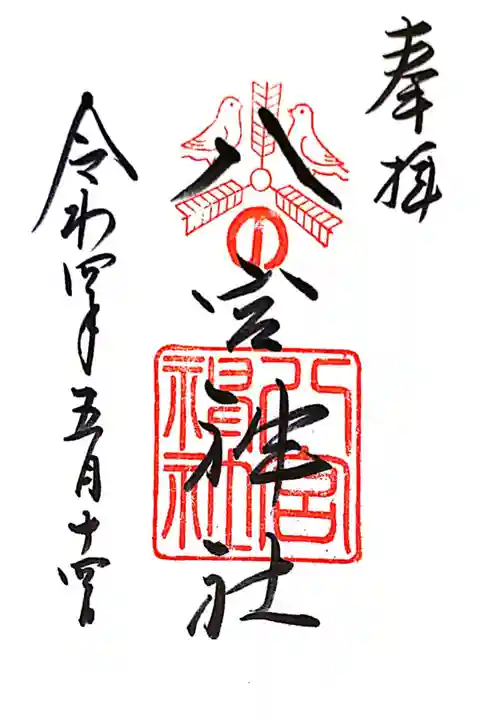 奉拝
八宮神社
八宮神社
令和四年五月十四日